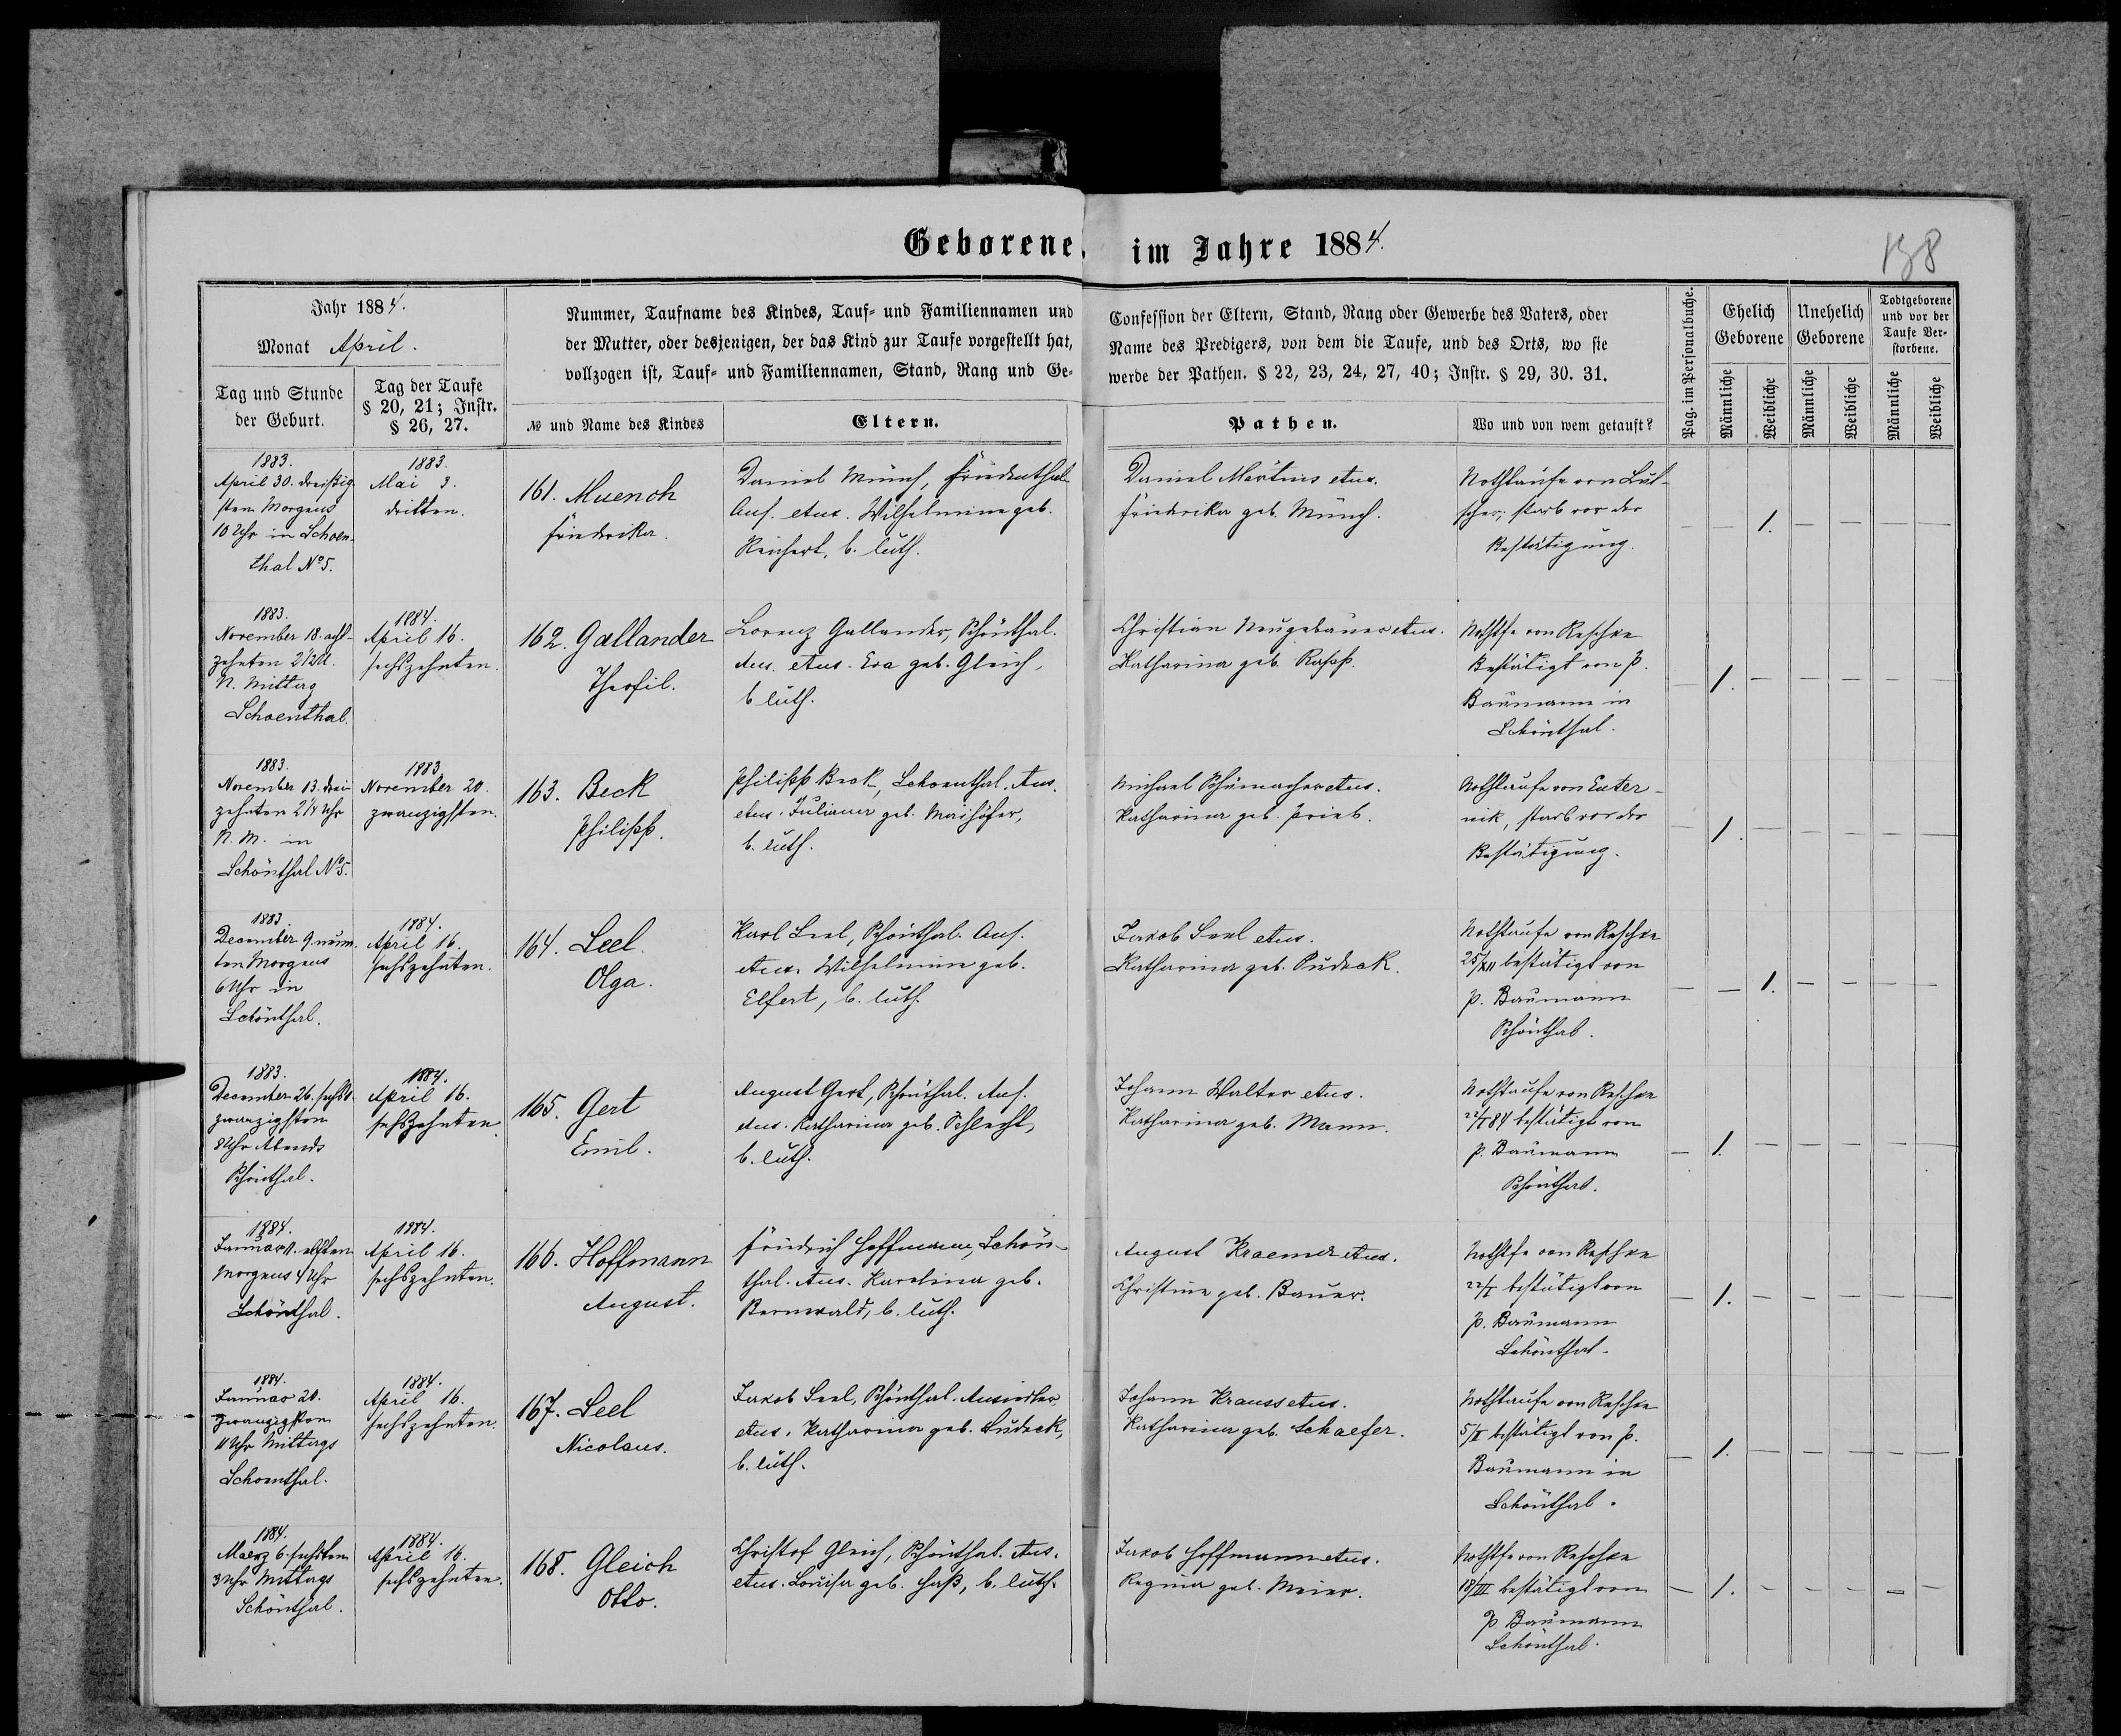 Geborene im Jahre 1884.
158
Jahr 1884.
Monat April.
Tag und Stunde der Geburt.
Tag der Taufe § 20, 21; Instr. § 26, 27.
Nummer, Taufname des Kindes, Tauf- und Familiennamen und
der Mutter, oder desjenigen, der das Kind zur Taufe vorgestellt hat,
vollzogen ist, Tauf- und Familiennamen, Stand, Rang und Ge-
№ und Name des Kindes
Eltern.
Confession der Eltern, Stand, Rang oder Gewerbe des Vaters, oder
Name des Predigers, von dem die Taufe, und des Orts, wo sie
werde der Pathen. § 22, 23, 24, 27, 40; Instr. § 29, 30. 31.
Pathen.
Wo und von wem getauft?
Pag. im Personalbuche.
Ehelich Geborene
Unehelich Geborene
Todtgeborene und vor der Taufe Verstorbene.
Männliche
Weibliche
Männliche
Weibliche
Männliche
Weibliche
1883.
April 30. dreißig-
sten Morgens
10 Uhr in Schoen-
thal No 5.
1883.
Mai 3.
dritten.
161. Muench
Friedrika.
Daniel Münch, Friedenthal
Ans. etus. Wilhelmine geb.
Reichert, b. luth.
Daniel Martins etus.
Friedrika geb. Münch.
Nothtaufe von Lut-
scher; starb vor der
Bestätigung.
— — 1. — — — —
1883.
November 18. acht-
zehnten 2 1/2 U.
N. Mittag
Schoenthal.
1884.
April 16.
sechszehnten.
162. Gallander
Theofil.
Lorenz Gallander, Schönthal.
Ans. etus. Eva geb. Gleich,
b luth.
Christian Neugebauer etus.
Katharina geb. Rapp.
Nothtfe von Reschke
Bestätigt von P.
Baumann in
Schönthal.
— 1. — — — — —
1883.
November 13. drei-
zehnten 2 1/4 Uhr
N. M. in
Schönthal No 5.
1883
November 20.
zwanzigsten.
163. Beck
Philipp.
Philipp Beck, Schoenthal. Ans.
etus. Juliana geb. Maihöfer,
b. luth.
Michael Schumacher etus.
Katharina geb. Prieb.
Nothtaufe von Euter-
nik, starb vor der
Bestätigung.
— 1. — — — — —
1883.
December 9. neun-
ten Morgens
6 Uhr in
Schönthal.
1884.
April 16.
sechszehnten.
164. Seel
Olga.
Karl Seel, Schönthal. Ans.
etus. Wilhelmine geb.
Elfert, b. luth.
Jakob Seel etus.
Katharina geb. Ludeck.
Nothtaufe von Reschke
25/XII bestätigt von
P. Baumann
Schönthal.
— — 1. — — — —
1883.
December 26. sechs-
zwanzigsten
8 Uhr Abends
Schönthal.
1884.
April 16.
sechszehnten.
165. Gert
Emil.
August Gert, Schönthal. Ans.
etus. Katharina geb. Schlecht,
b. luth.
Johann Walter etus.
Katharina geb. Mann.
Nothtaufe von Reschke
22/I 84 bestätigt von
P. Baumann
Schönthal.
— 1. — — — — —
1884.
Januar 11. elften
Morgens 4 Uhr
Schönthal.
1884.
April 16.
sechszehnten.
166. Hoffmann
August.
Friedrich Hoffmann, Schön-
thal. Ans. Karolina geb.
Bernwald, b. luth.
August Kraemer etus.
Christine geb. Bauer.
Nothtfe von Reschke
22/I bestätigt von
P. Baumann
Schönthal.
— 1. — — — — —
1884.
Januar 20.
zwanzigsten
11 Uhr Mittags
Schoenthal.
1884.
April 16.
sechszehnten.
167. Seel
Nicolaus.
Jakob Seel, Schönthal. Ansiedler
etus. Katharina geb. Ludeck,
b. luth.
Johann Krauss etus.
Katharina geb. Schaefer.
Nothtaufe von Reschke
5/II bestätigt von P.
Baumann in
Schönthal.
— 1. — — — — —
1884.
Maerz 6. sechsten
3 Uhr Mittags
Schönthal.
1884.
April 16.
sechszehnten.
168. Gleich
Otto.
Christof Gleich, Schönthal. Ans.
etus. Louisa geb. Haß, b. luth.
Jakob Hoffmann etus.
Regina geb. Meier.
Nothtfe von Reschke
18/III bestätigt von
P Baumann
Schönthal.
— 1. — — — — —